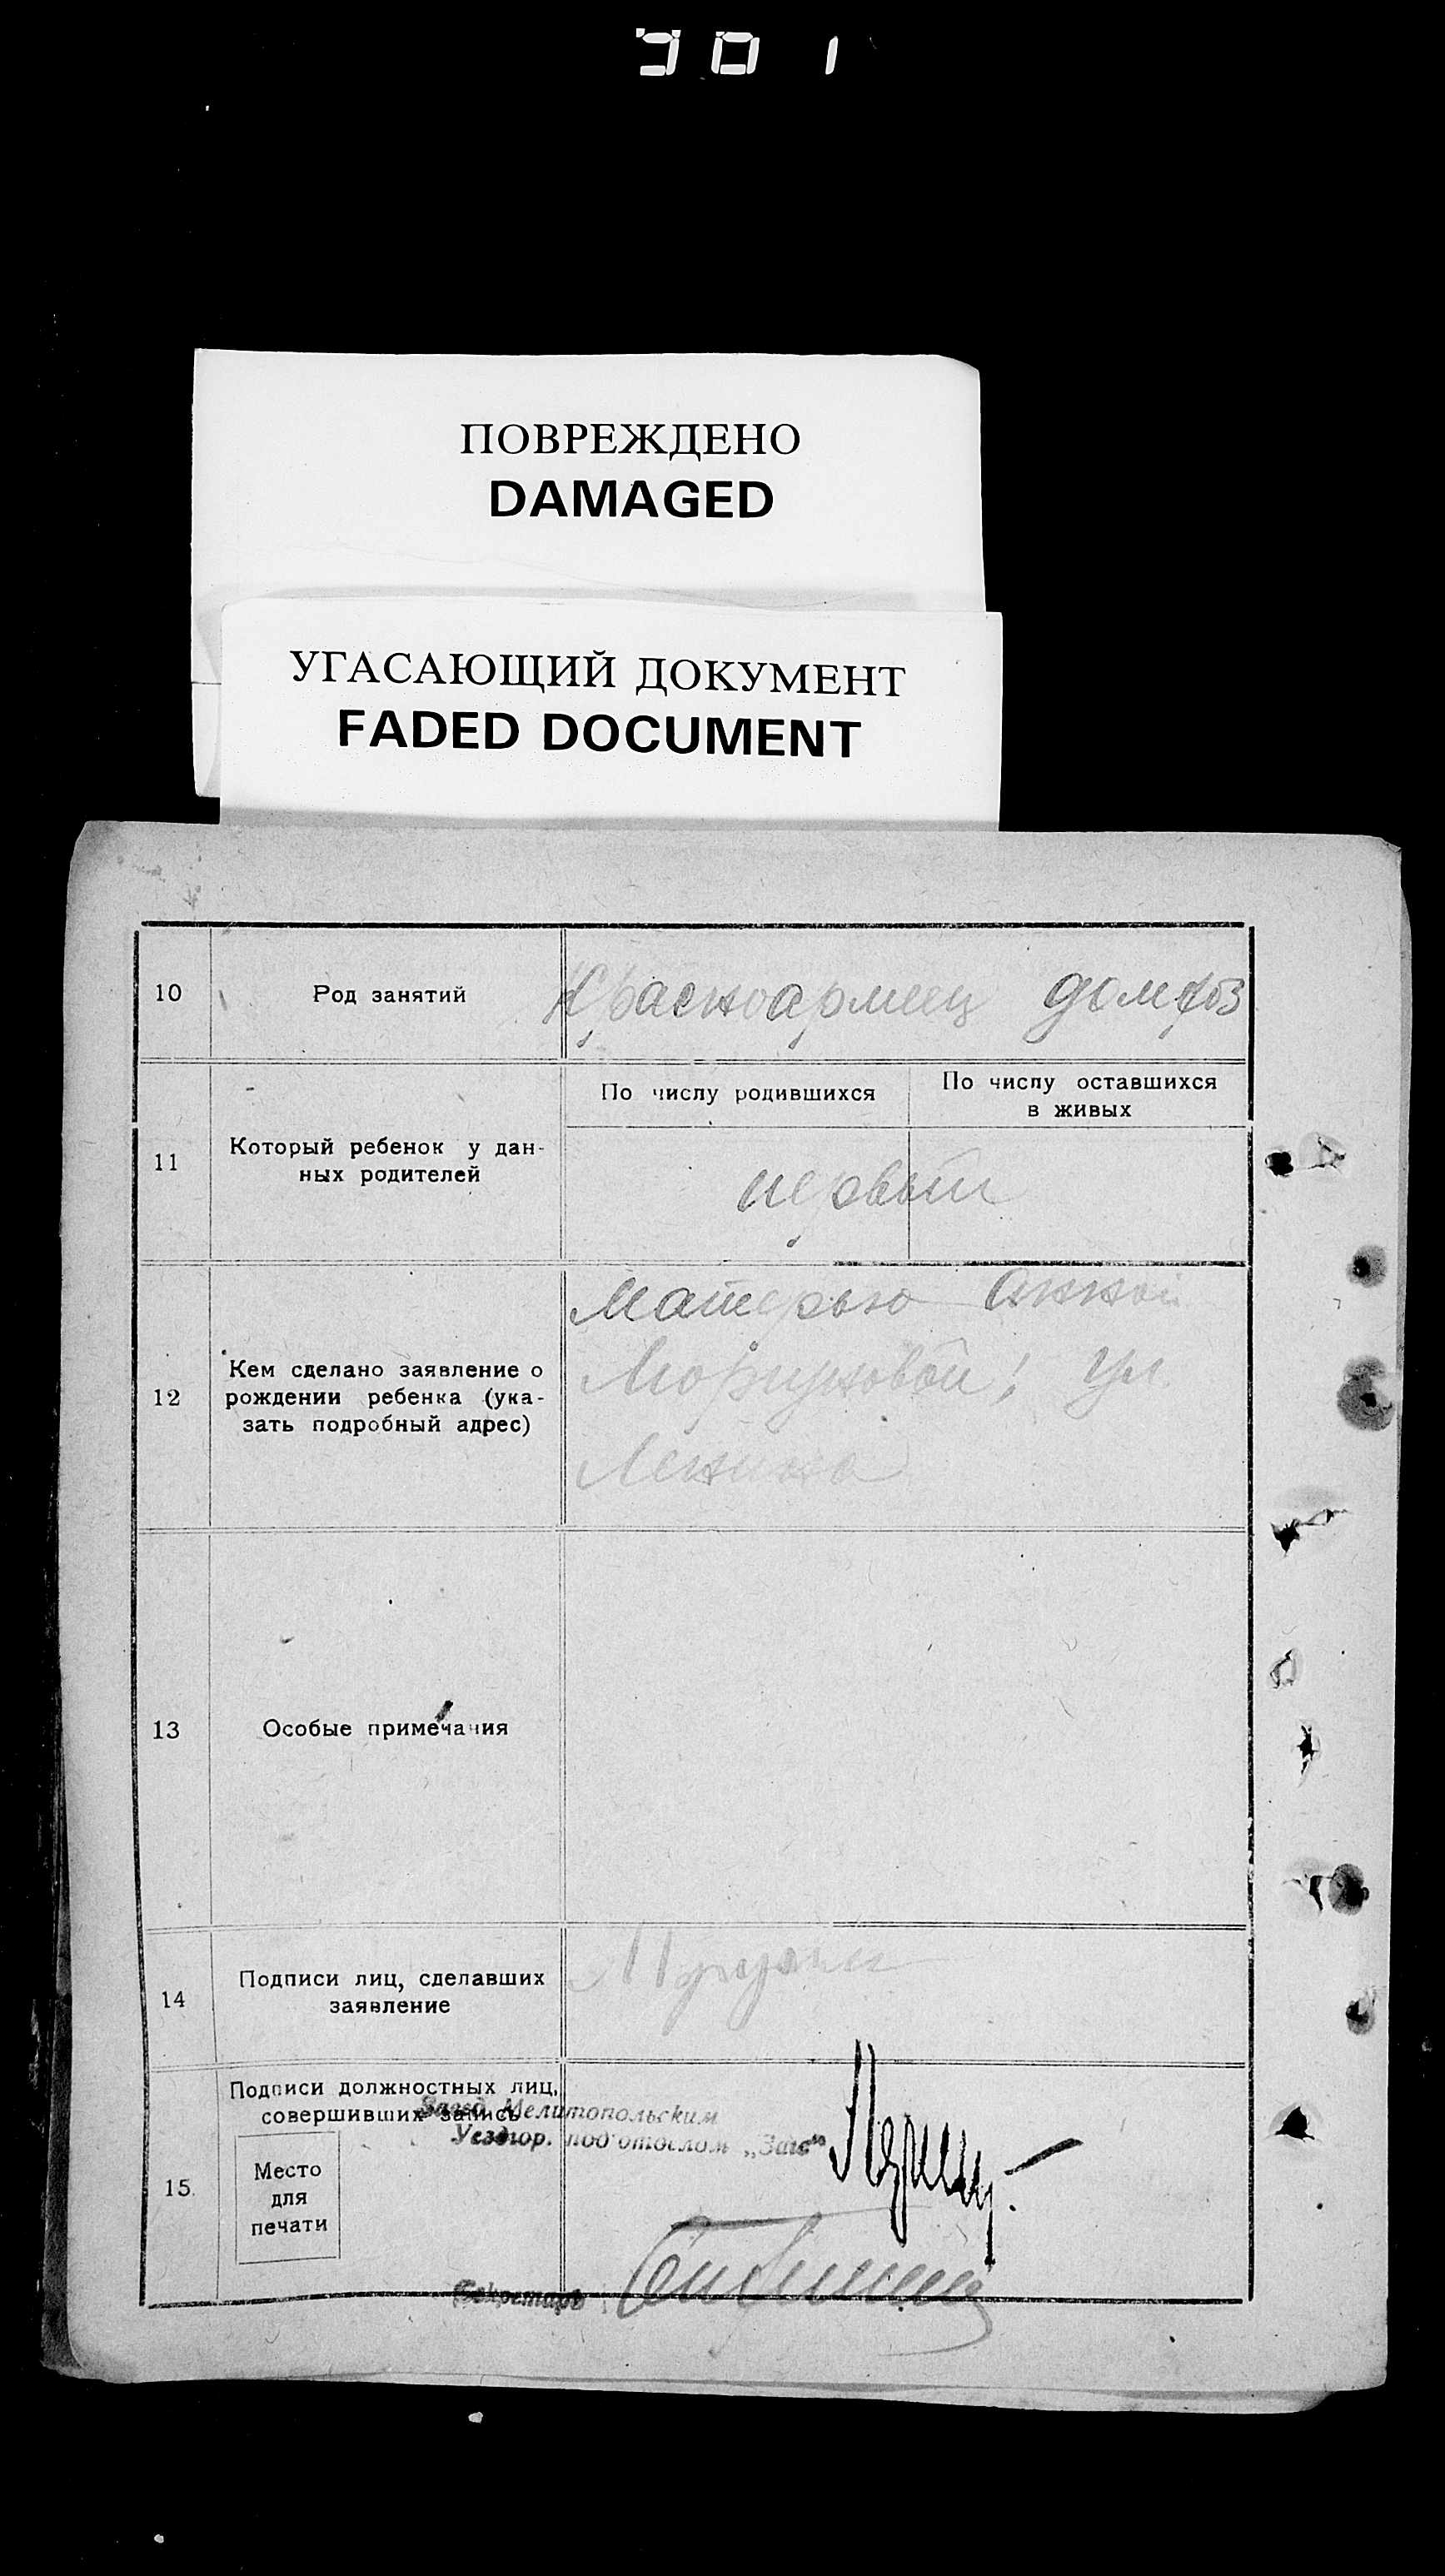 301
ПОВРЕЖДЕНО
DAMAGED
УГАСАЮЩИЙ ДОКУМЕНТ
FADED DOCUMENT
10
Род занятий
Красноармеец домхоз
11
Который ребенок у дан-
ных родителей
По числу родившихся
По числу оставшихся
в живых
первый
12
Кем сделано заявление о
рождении ребенка (ука-
зать подробный адрес)
Матерью Анной
Ул.
Ленина
13
Особые примечания
14
Подписи лиц, сделавших
заявление
15
Подписи должностных лиц,
совершивших запись
Завед. Мелитопольским
Уездгор. под'отделом „Загс"
Место
для
печати
Секретарь